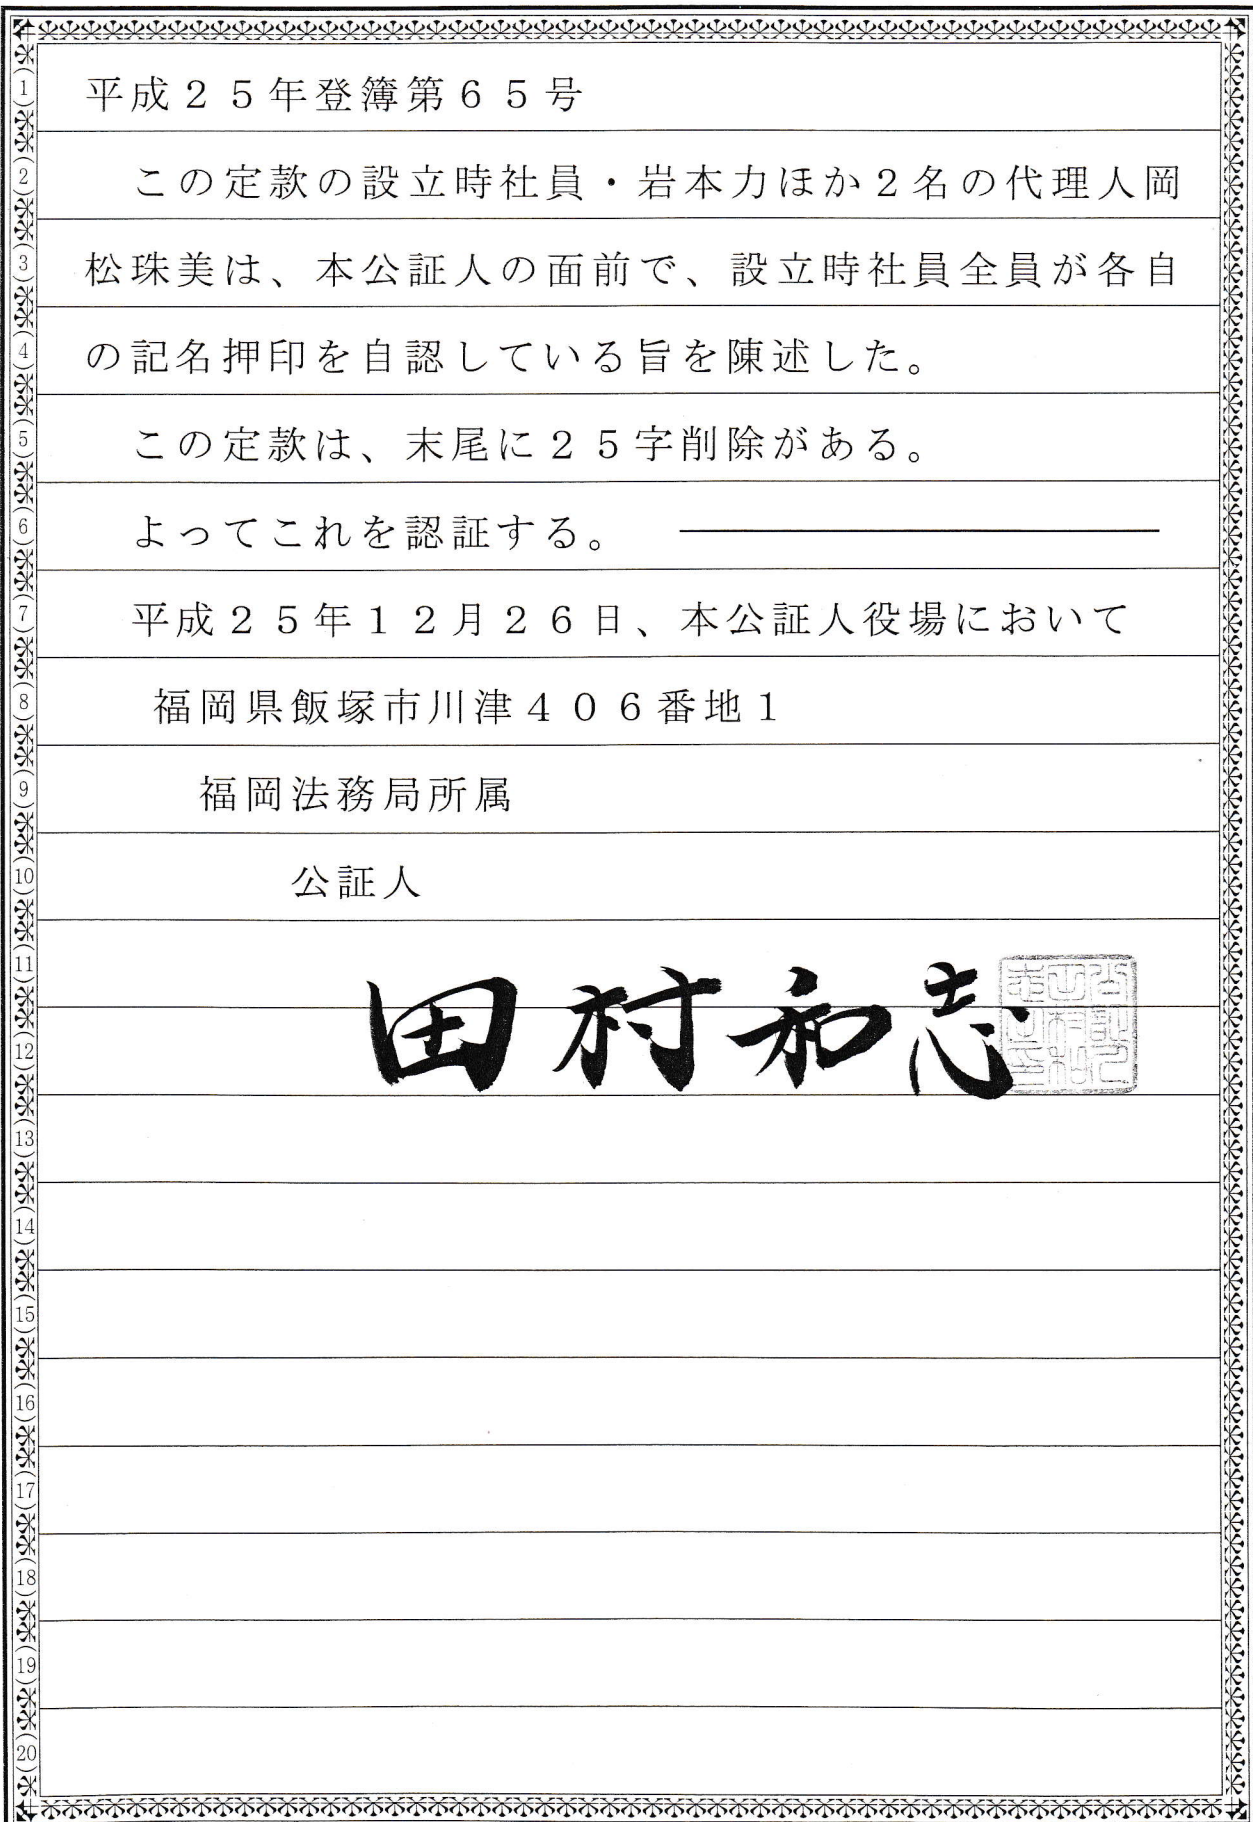 (1) 平成２５年登簿第６５号
(2) この定款の設立時社員・岩本力ほか２名の代理人岡
(3) 松珠美は、本公証人の面前で、設立時社員全員が各自
(4) の記名押印を自認している旨を陳述した。
(5) この定款は、末尾に２５字削除がある。
(6) よってこれを認証する。
(7) 平成２５年１２月２６日、本公証人役場において
(8) 福岡県飯塚市川津４０６番地１
(9) 福岡法務局所属
(10) 公証人
(11)
田村和志
(12)
(13)
(14)
(15)
(16)
(17)
(18)
(19)
(20)